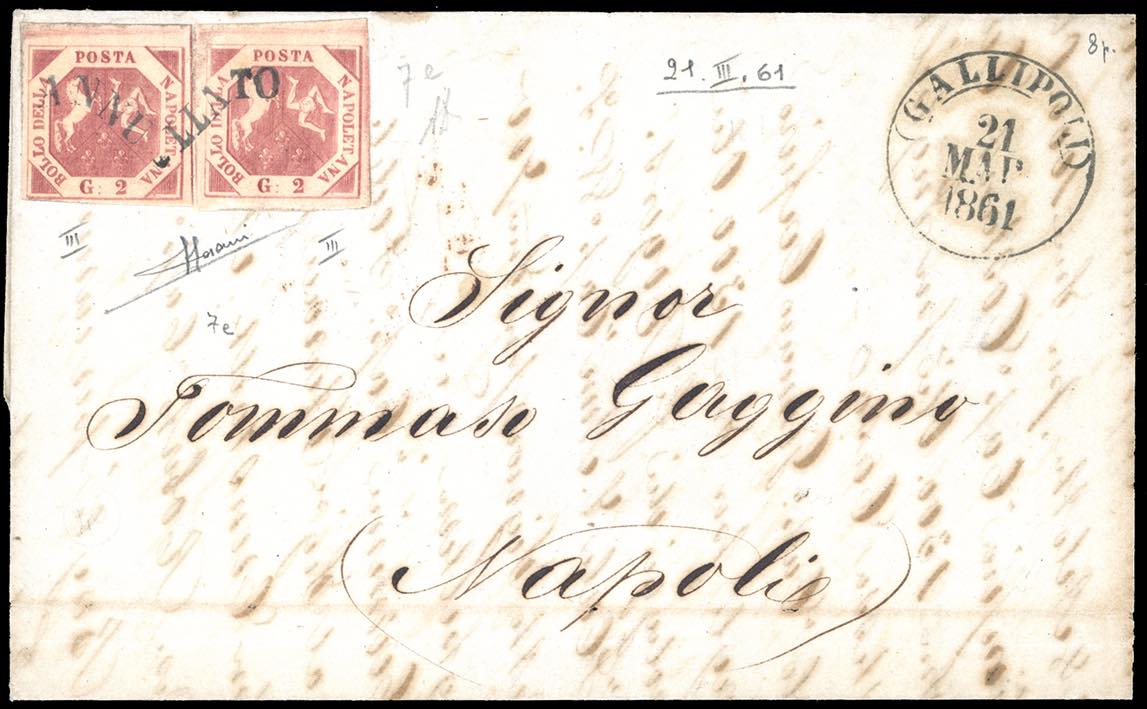 POSTA
BOLLO DELLA
NAPOLETANA
G: 2
POSTA
BOLLO DELLA
NAPOLETANA
G: 2
ANNULLATO
7e
21. III. 61
8p.
GALLIPOLI
21
MAR
1861
III
III
7e
Signor
Tommaso Gaggino
Napoli